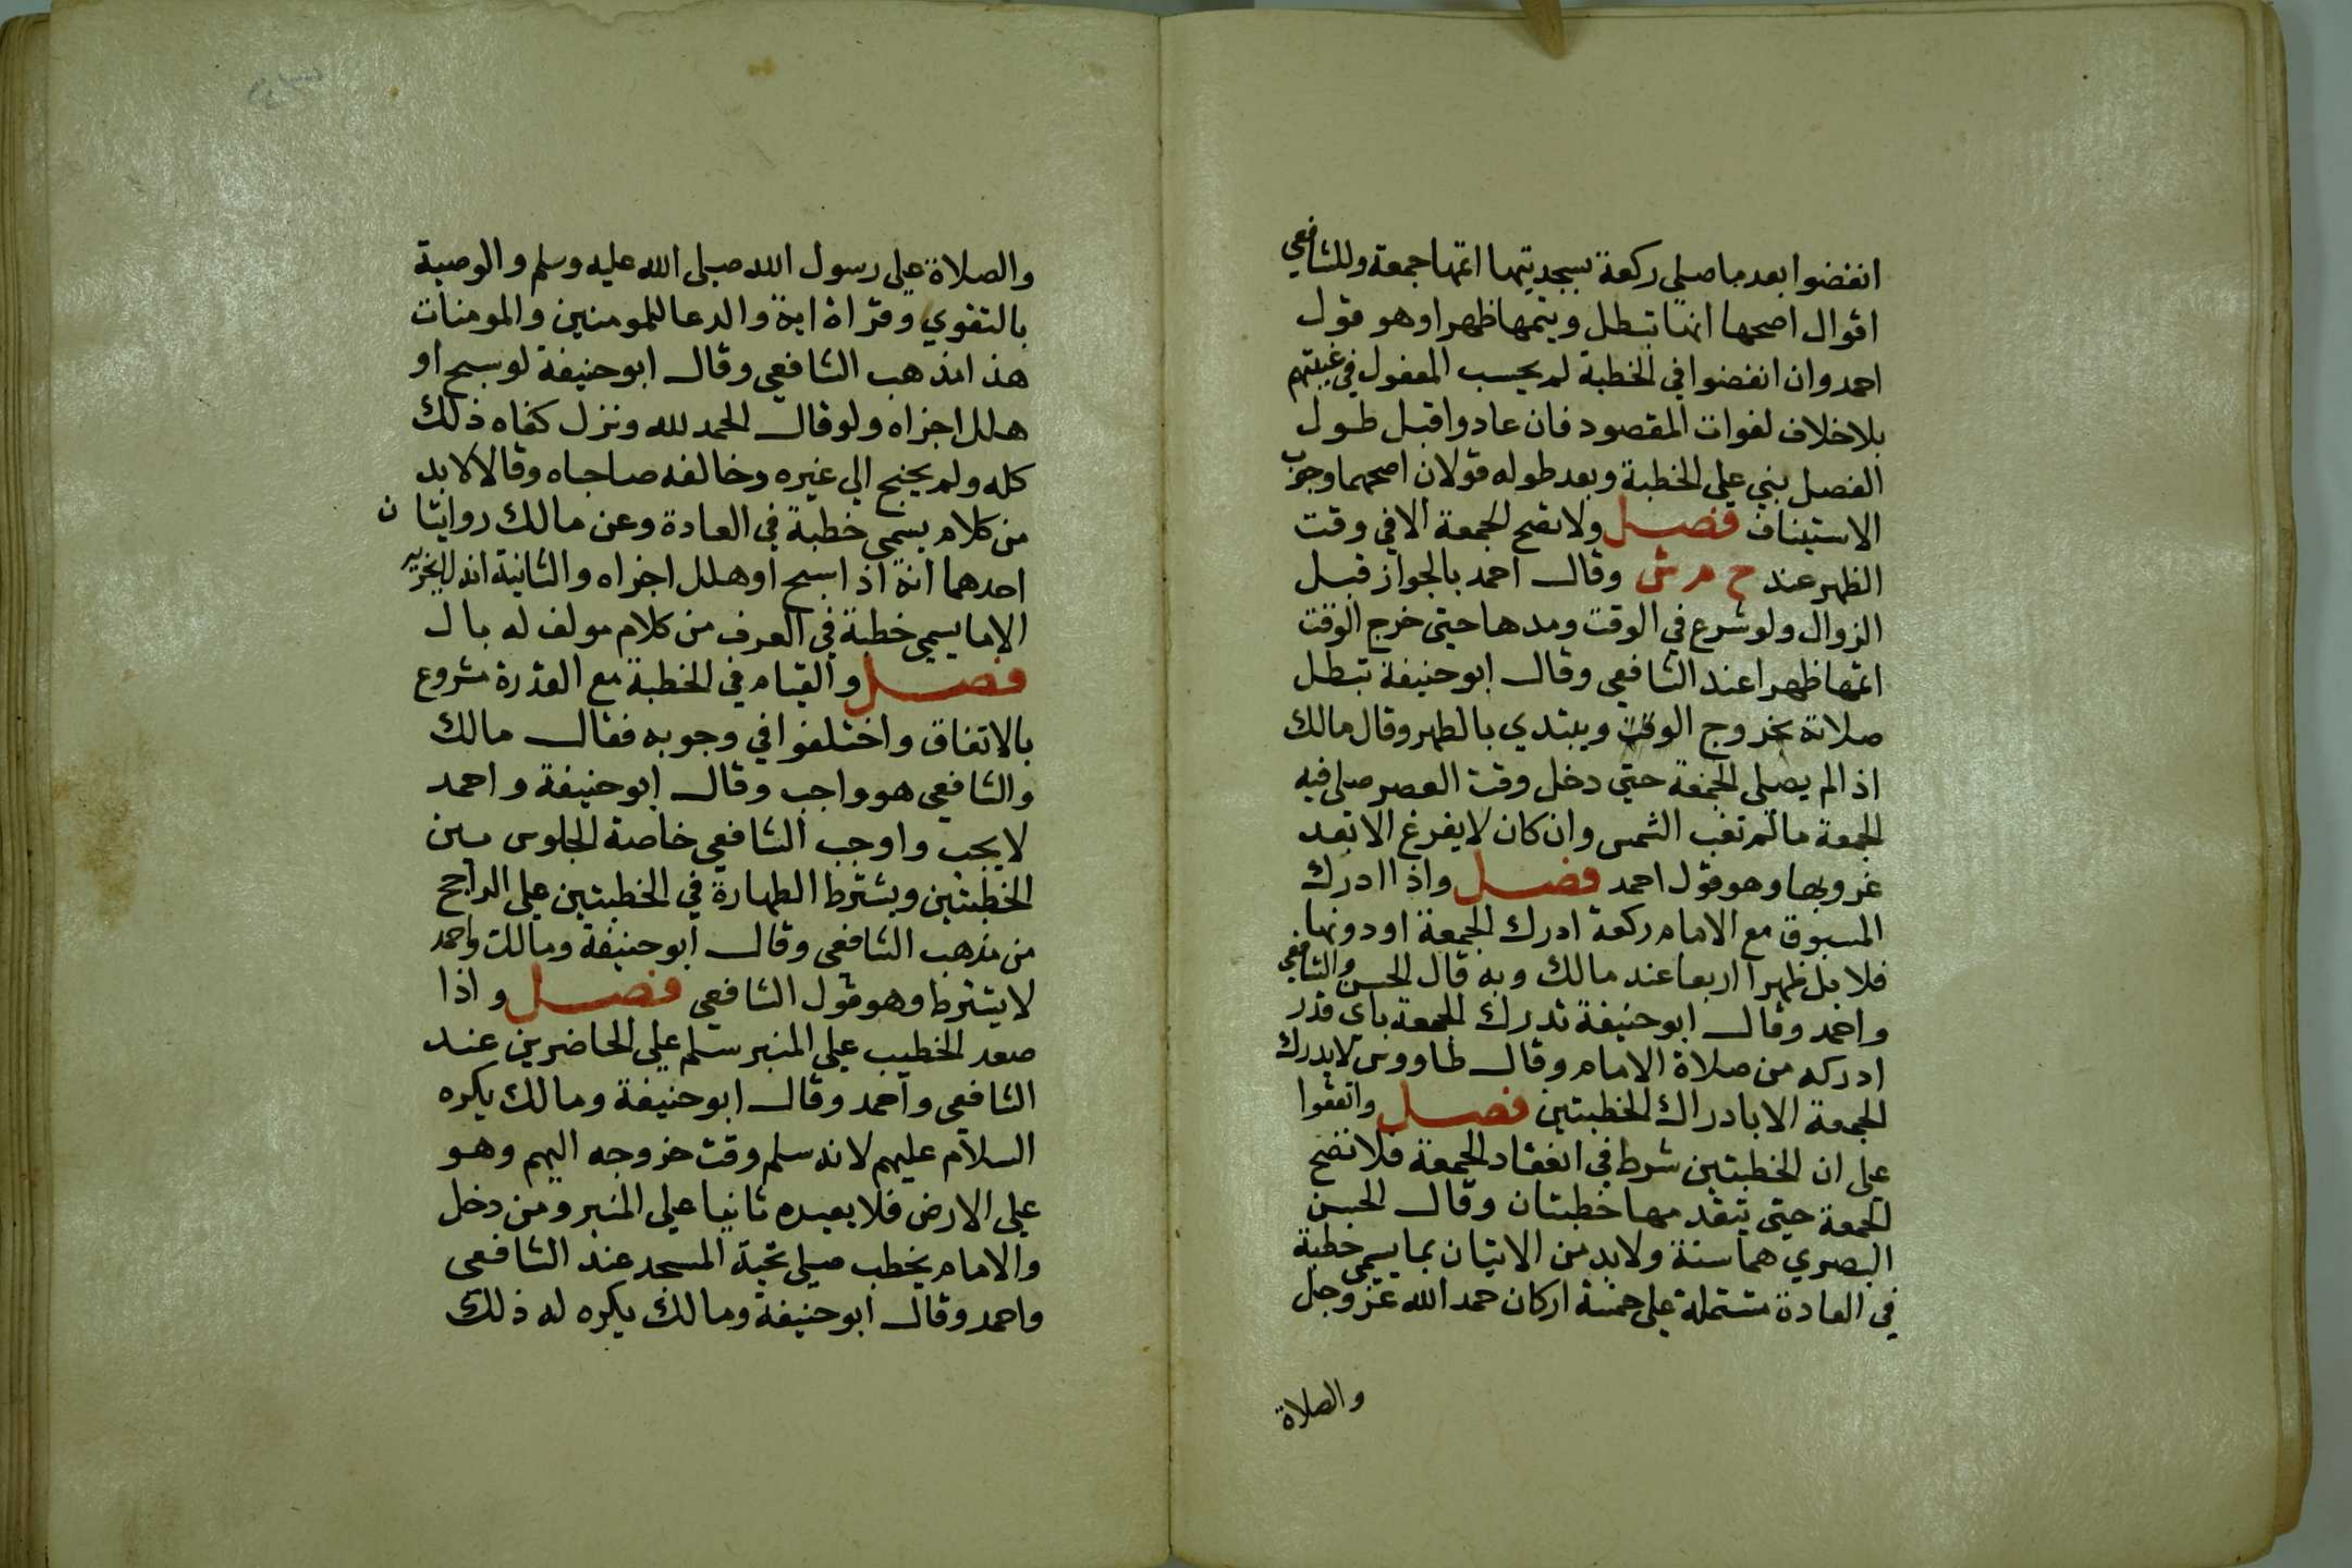 انفضوا بعد ما صلى ركعة بسجديتها اتمها جمعة وللشافعي
اقوال اصحها انها تبطل ويتمها ظهرا وهو قول
احمد وان انفضوا في الخطبة لم يحسب المفعول في غيبتهم
بلا خلاف لفوات المقصود فان عادوا قبل طول
الفصل بني علي الخطبة وبعد طوله قولان اصحهما وجوب
الاستيناف فصل ولا تصح الجمعة الا في وقت
الظهر عند ح م ش وقال احمد بالجواز قبل
الزوال ولو شرع في الوقت ومدها حتى خرج الوقت
اتمها ظهرا عند الشافعي وقال ابو حنيفة تبطل
صلاته بخروج الوقت ويبتدي بالظهر وقال مالك
اذا لم يصلي الجمعة حتي دخل وقت العصر صلى فيه
الجمعة ما لم تغب الشمس وان كان لا يفرغ الا بعد
غروبها وهو قول احمد فصل واذا ادرك
المسبوق مع الامام ركعة ادرك الجمعة او دونها
فلا بل ظهرا اربعا عند مالك وبه قال الحسن والشافعي
واحمد وقال ابو حنيفة تدرك الجمعة باي قدر
ادركه من صلاة الامام وقال طاووس لا يدرك
الجمعة الا بادراك الخطبتين فصل واتفقوا
على ان الخطبتين شرط في انعقاد الجمعة فلا تصح
الجمعة حتى يتقدمها خطبتان وقال الحسن
البصري هما سنة ولا بد من الاتيان بما يسمى خطبة
في العادة مشتملة على خمسة اركان حمد الله عز وجل
والصلاة
والصلاة علي رسول الله صلى الله عليه وسلم والوصية
بالتقوي وقراة اية والدعا للمومنين والمومنات
هذا مذهب الشافعي وقال ابو حنيفة لو سبح او
هلل اجزاه ولو قال الحمد لله ونزل كفاه ذلك
كله ولم يحتج الي غيره وخالفه صاحباه وقالا لا بد
من كلام يسمى خطبة في العادة وعن مالك روايتان
احدهما انه اذا سبح او هلل اجزاه والثانية انه لا يجزيه
الا ما يسمي خطبة في العرف من كلام مولف له بال
فصل والقيام في الخطبة مع القدرة مشروع
بالاتفاق واختلفوا في وجوبه فقال مالك
والشافعي هو واجب وقال ابو حنيفة واحمد
لا يجب واوجب الشافعي خاصة الجلوس بين
الخطبتين ويشترط الطهارة في الخطبتين علي الراجح
من مذهب الشافعي وقال ابو حنيفة ومالك واحمد
لا يشترط وهو قول الشافعي فصل واذا
صعد الخطيب علي المنبر سلم علي الحاضرين عند
الشافعي واحمد وقال ابو حنيفة ومالك يكره
السلام عليهم لانه سلم وقت خروجه اليهم وهو
علي الارض فلا يعيده ثانيا علي المنبر ومن دخل
والامام يخطب صلى تحية المسجد عند الشافعي
واحمد وقال ابو حنيفة ومالك يكره له ذلك